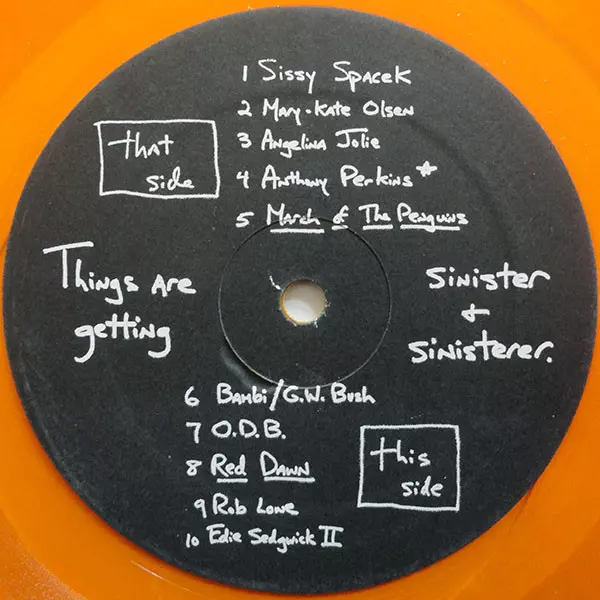 1 Sissy Spacek
2 Mary-Kate Olsen
3 Angelina Jolie
4 Anthony Perkins*
5 March of The Penguins
that
side
Things Are
getting
Sinister
+
Sinisterer.
6 Bambi/G.W. Bush
7 O.D.B.
8 Red Dawn
9 Rob Lowe
10 Edie Sedgwick II
this
side